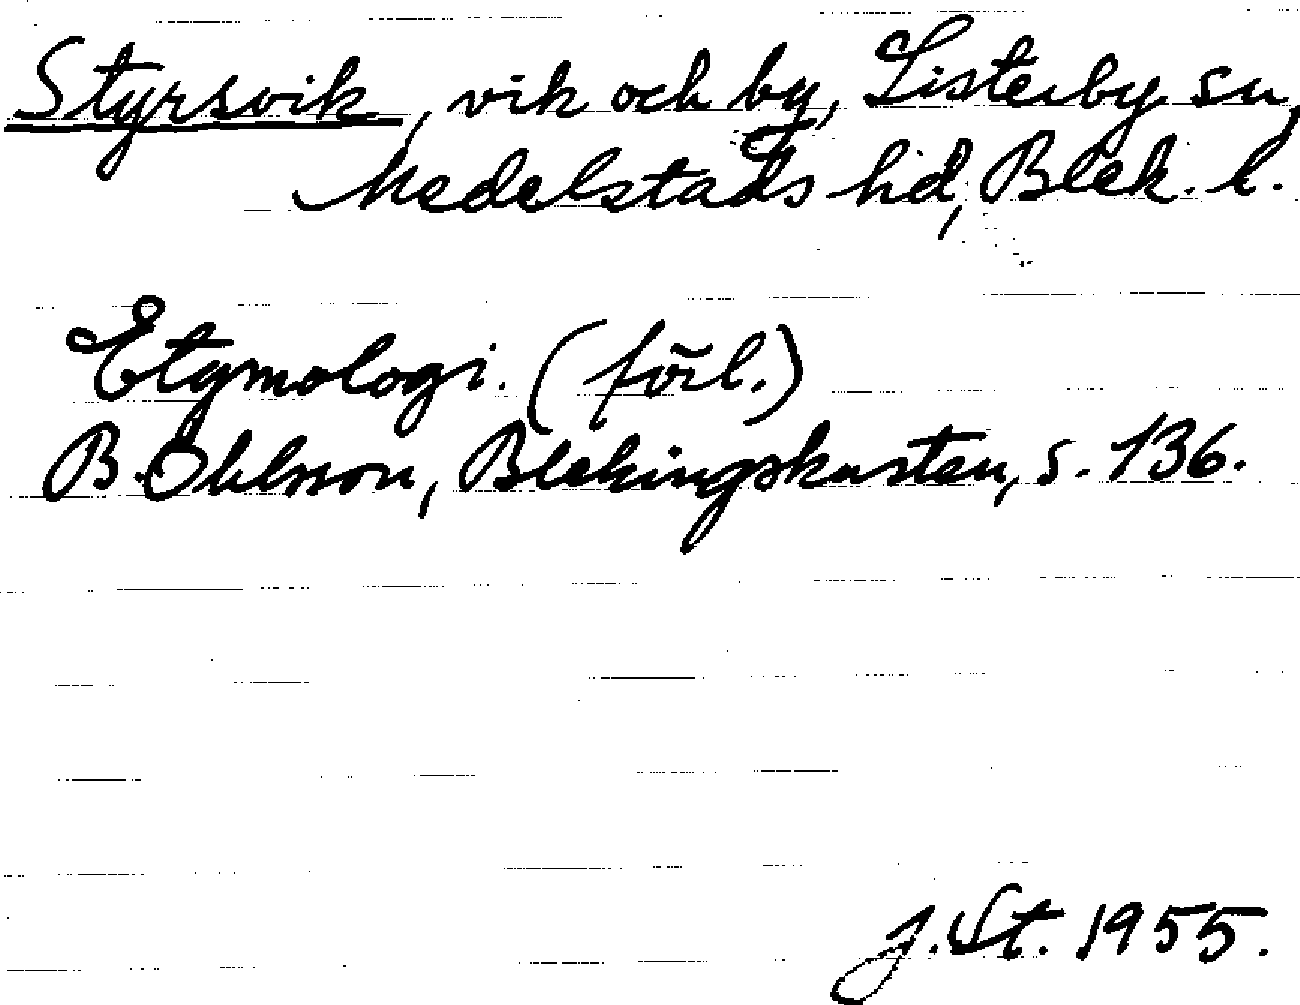 Styrsvik, vik och by, Listerby sn,
Medelstads hd, Blek. l.
Etymologi. (förl.)
B. Ohlsson, Blekingskusten, s. 136.
J. St. 1955.